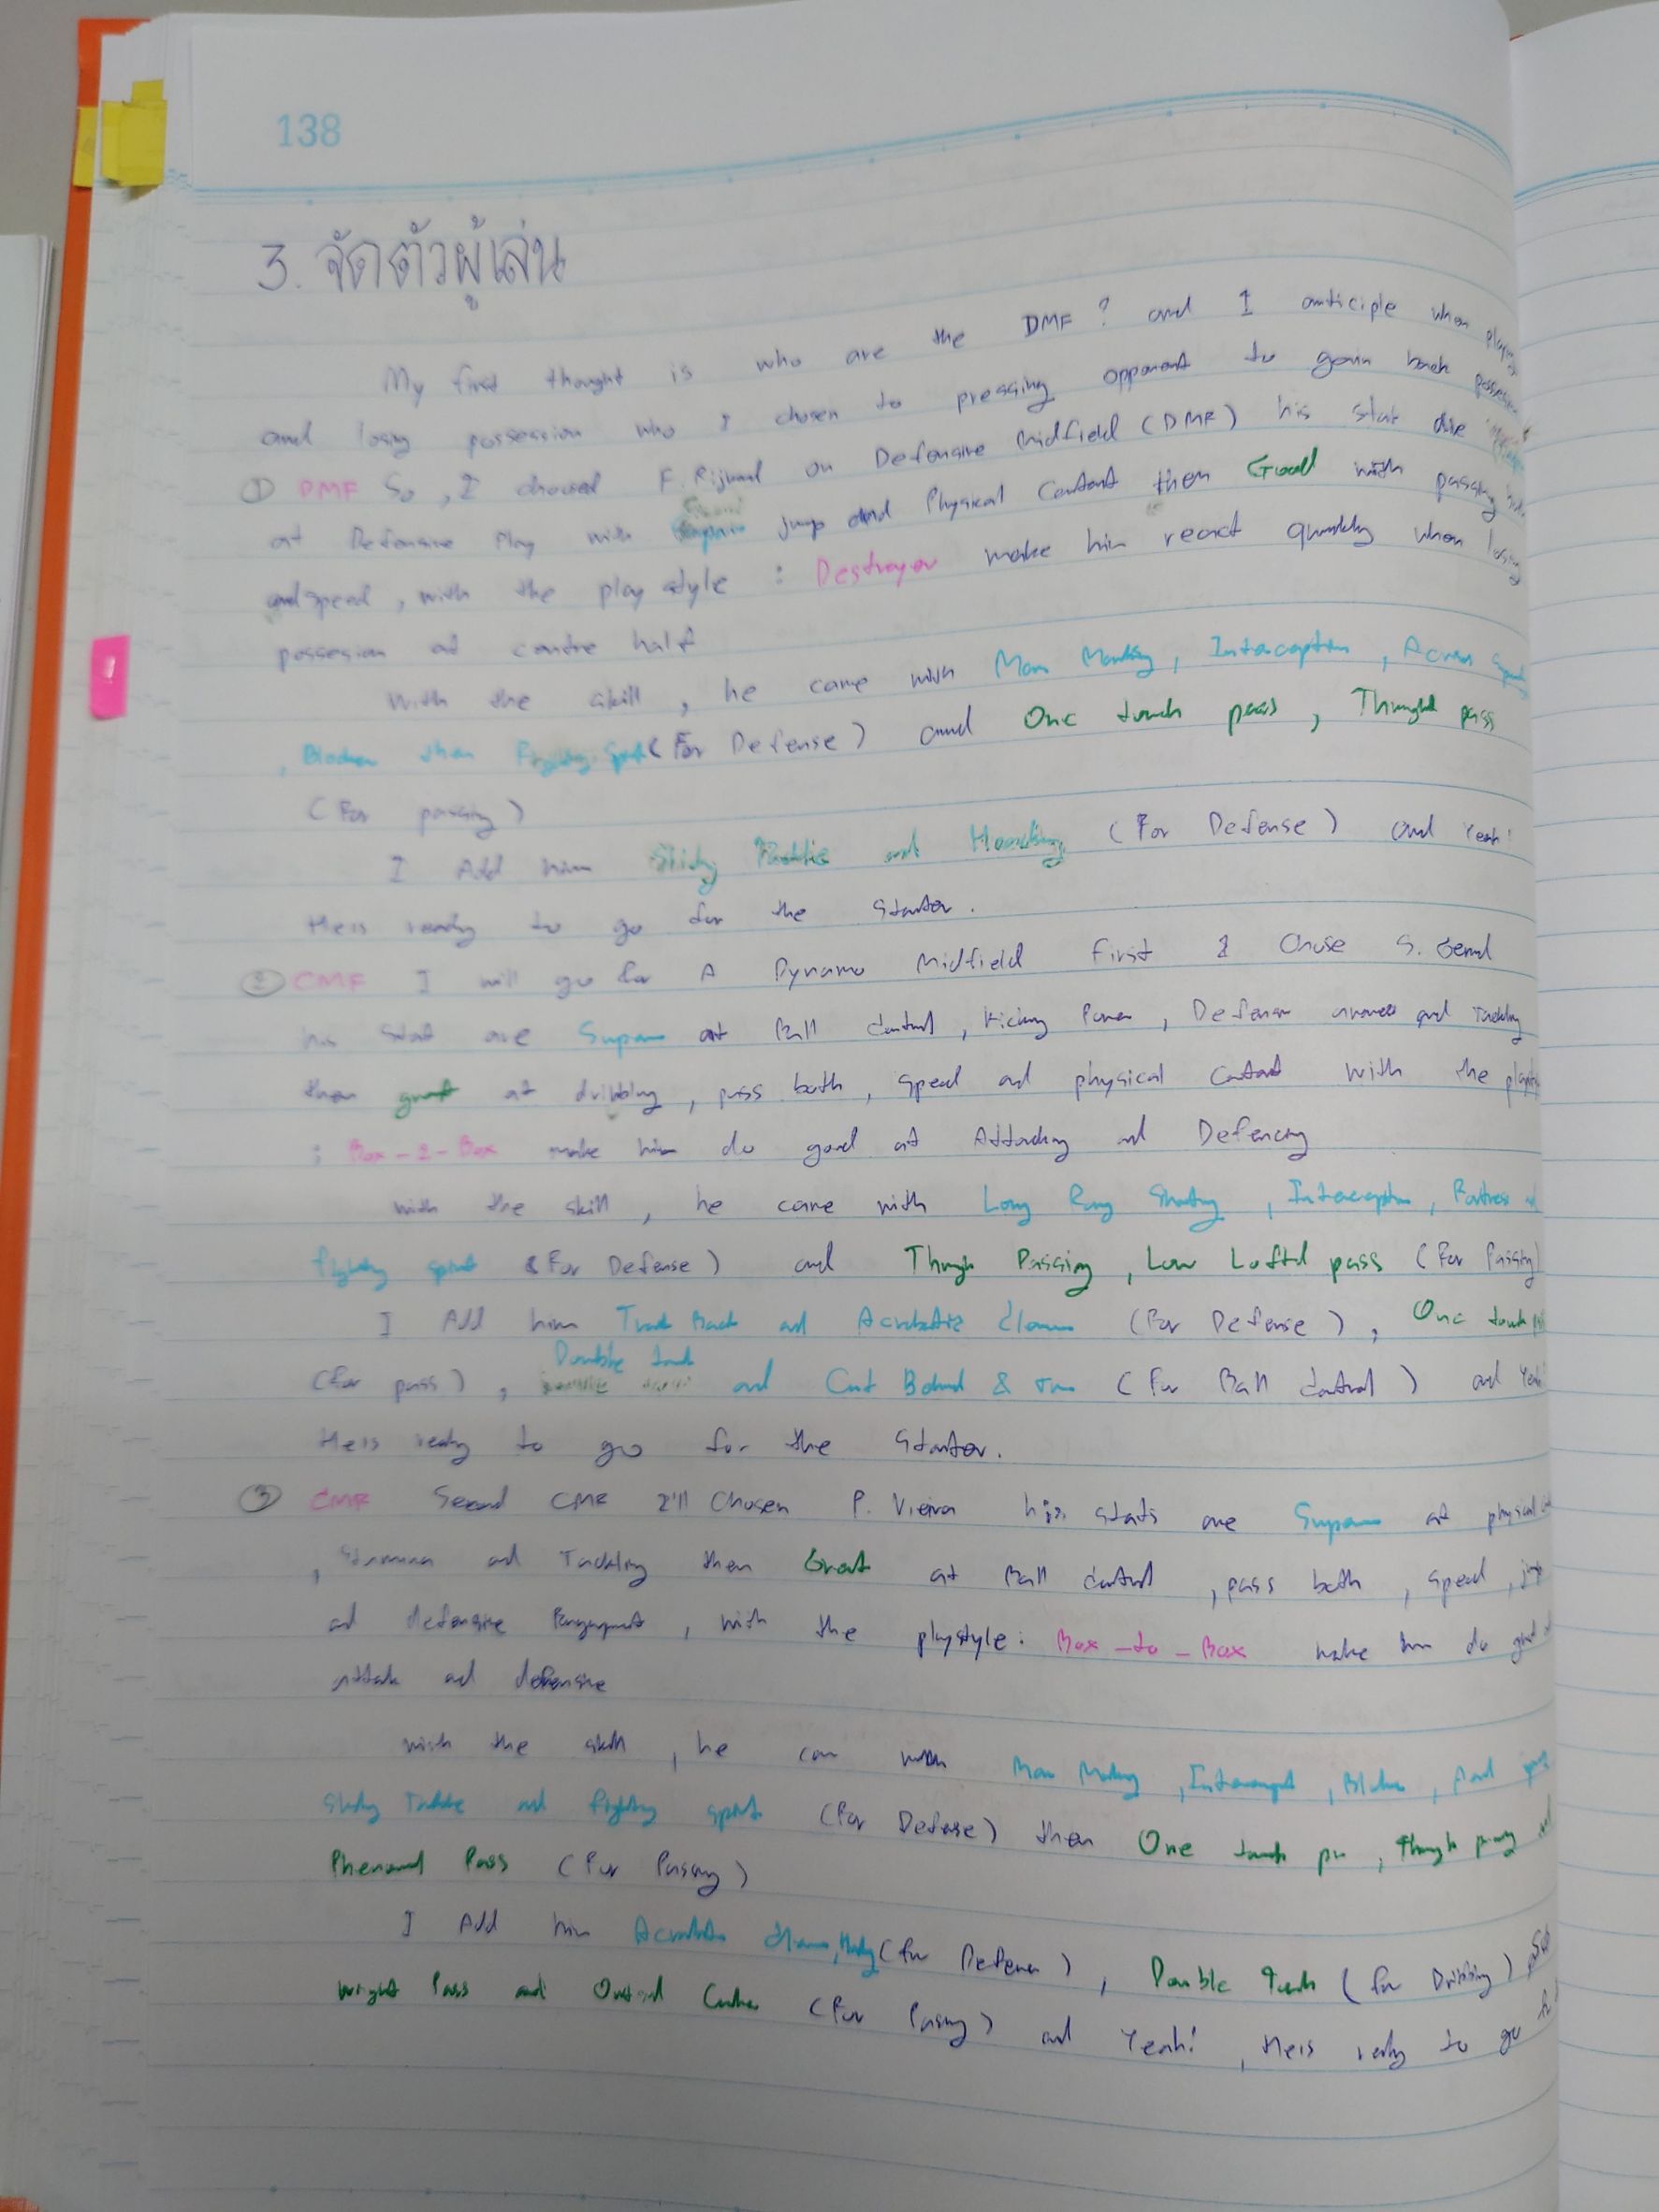 138
3. จัดตัวผู้เล่น
My first thought is who are the DMF ? and I anticiple when
and losing possession who I chosen to pressing opponent to gain back
① DMF So , I choosed F. Rijkaard on Defensive Midfield (DMF) his stat are
at Defensive Play with jump and Physical Contact then Good with passing
and speed , with the play style : Destroyer make him react quickly when losing
possesion at centre half
With the skill , he came with Man Marking , Interception ,
, Blocker then Fighting Spirit (For Defense) and One touch pass , Throught pass
(For passing)
I Add him Sliding Tackle and Heading (For Defense) and Yeah!
He is ready to go for the Starter .
② CMF I will go for A Dynamo Midfield First I Chose S. Gerrard
his stat are Super at Ball Control , Kicking Power , Defense and Tackling
then great at dribbling , pass both , speed and physical Contact with the
: Box - 2 - Box make him do good at Attacking and Defencing
with the skill , he came with Long Rang Shooting , Interception , Fortress
fighting spirit (For Defense) and Though Passing , Low Loftd pass (For Passing)
I Add him Track Back and Acrobatic Clear (For Defense) , One touch
(for pass) , Double touch and Cut Behind & turn (For Ball Control) and Yeah
He is ready to go for the Starter .
③ CMF Second CMF I'll Chosen P. Vieira his stats are Super at physical
, Stamina and Tackling then Great at Ball Control , pass both , speed , jump
and defensive , with the playstyle : Box - to - Box make him do
Attack and defensive
with the skill , he with Man Marking , Intercept , Blocker ,
Sliding Tackle and fighting spirit (For Defense) then One touch , Though
Phenomal Pass (For Passing)
I Add him Acrobatic (for Defense) , Double Touch (for Dribbling)
Weight Pass and (For Passing) and Yeah! , He is ready to go